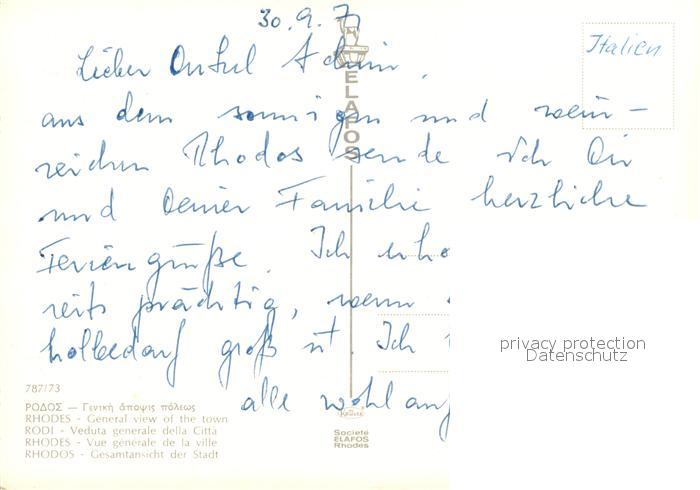 30.9.7
Italien
Lieber Onkel
ELAFOS
aus dem sonnigen und wein-
reichen Rhodos sende ich Dir
und Deiner Familie herzliche
Feriengrüße. Ich erho
prächtig, wenn
groß ist Ich
alle wohl auf
privacy protection
Datenschutz
787/73
ΡΟΔΟΣ — Γενική άποψις πόλεως
RHODES - General view of the town
RODI - Veduta generale della Città
RHODES - Vue générale de la ville
RHODOS - Gesamtansicht der Stadt
Société
ELAFOS
Rhodes